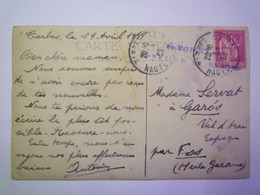 Tarbes, le 19 Avril 19
CARTE
Bien chère maman,
Nous sommes surpris
de n'avoir encore pas reçu
de tes nouvelles.
Nous te prions de nous
écrire le plus tôt possi-
ble. Rassure-nous.
Entre temps, nous t'en-
voyons nos plus affectueux
baisers Antoine
Madame Servat
à Garós
Val d'Aran
Espagne
par Fos
(Haute Garonne)